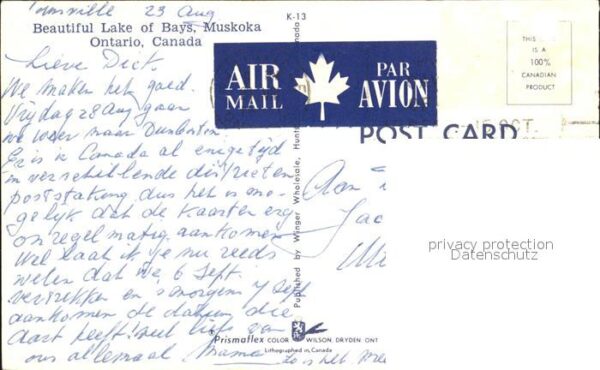 23 Aug
Beautiful Lake of Bays, Muskoka
Ontario, Canada
K-13
THIS
IS A
100%
CANADIAN
PRODUCT
AIR
MAIL
PAR
AVION
POST CARD
Lieve Dick.
We maken het goed.
Vrijdag 28 Aug gaan
we weer naar
Er is in Canada al enige tijd
in verschillende
poststaking dus het is mo-
gelijk dat de kaarten erg
onregelmatig aankomen
Wel laat ik je nu reeds
weten dat we 6 Sept.
vertrekken en 's morgens 7 Sept
aankomen de datum die
Aart heeft! veel liefs van
ons allemaal Mama
zo is het
Aan
Published by Winger Wholesale,
privacy protection
Datenschutz
Prismaflex COLOR WILSON, DRYDEN ONT
Lithographed in Canada